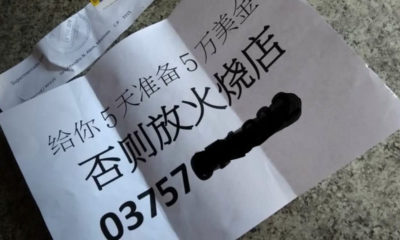 给你5天准备5万美金
否则放火烧店
03757